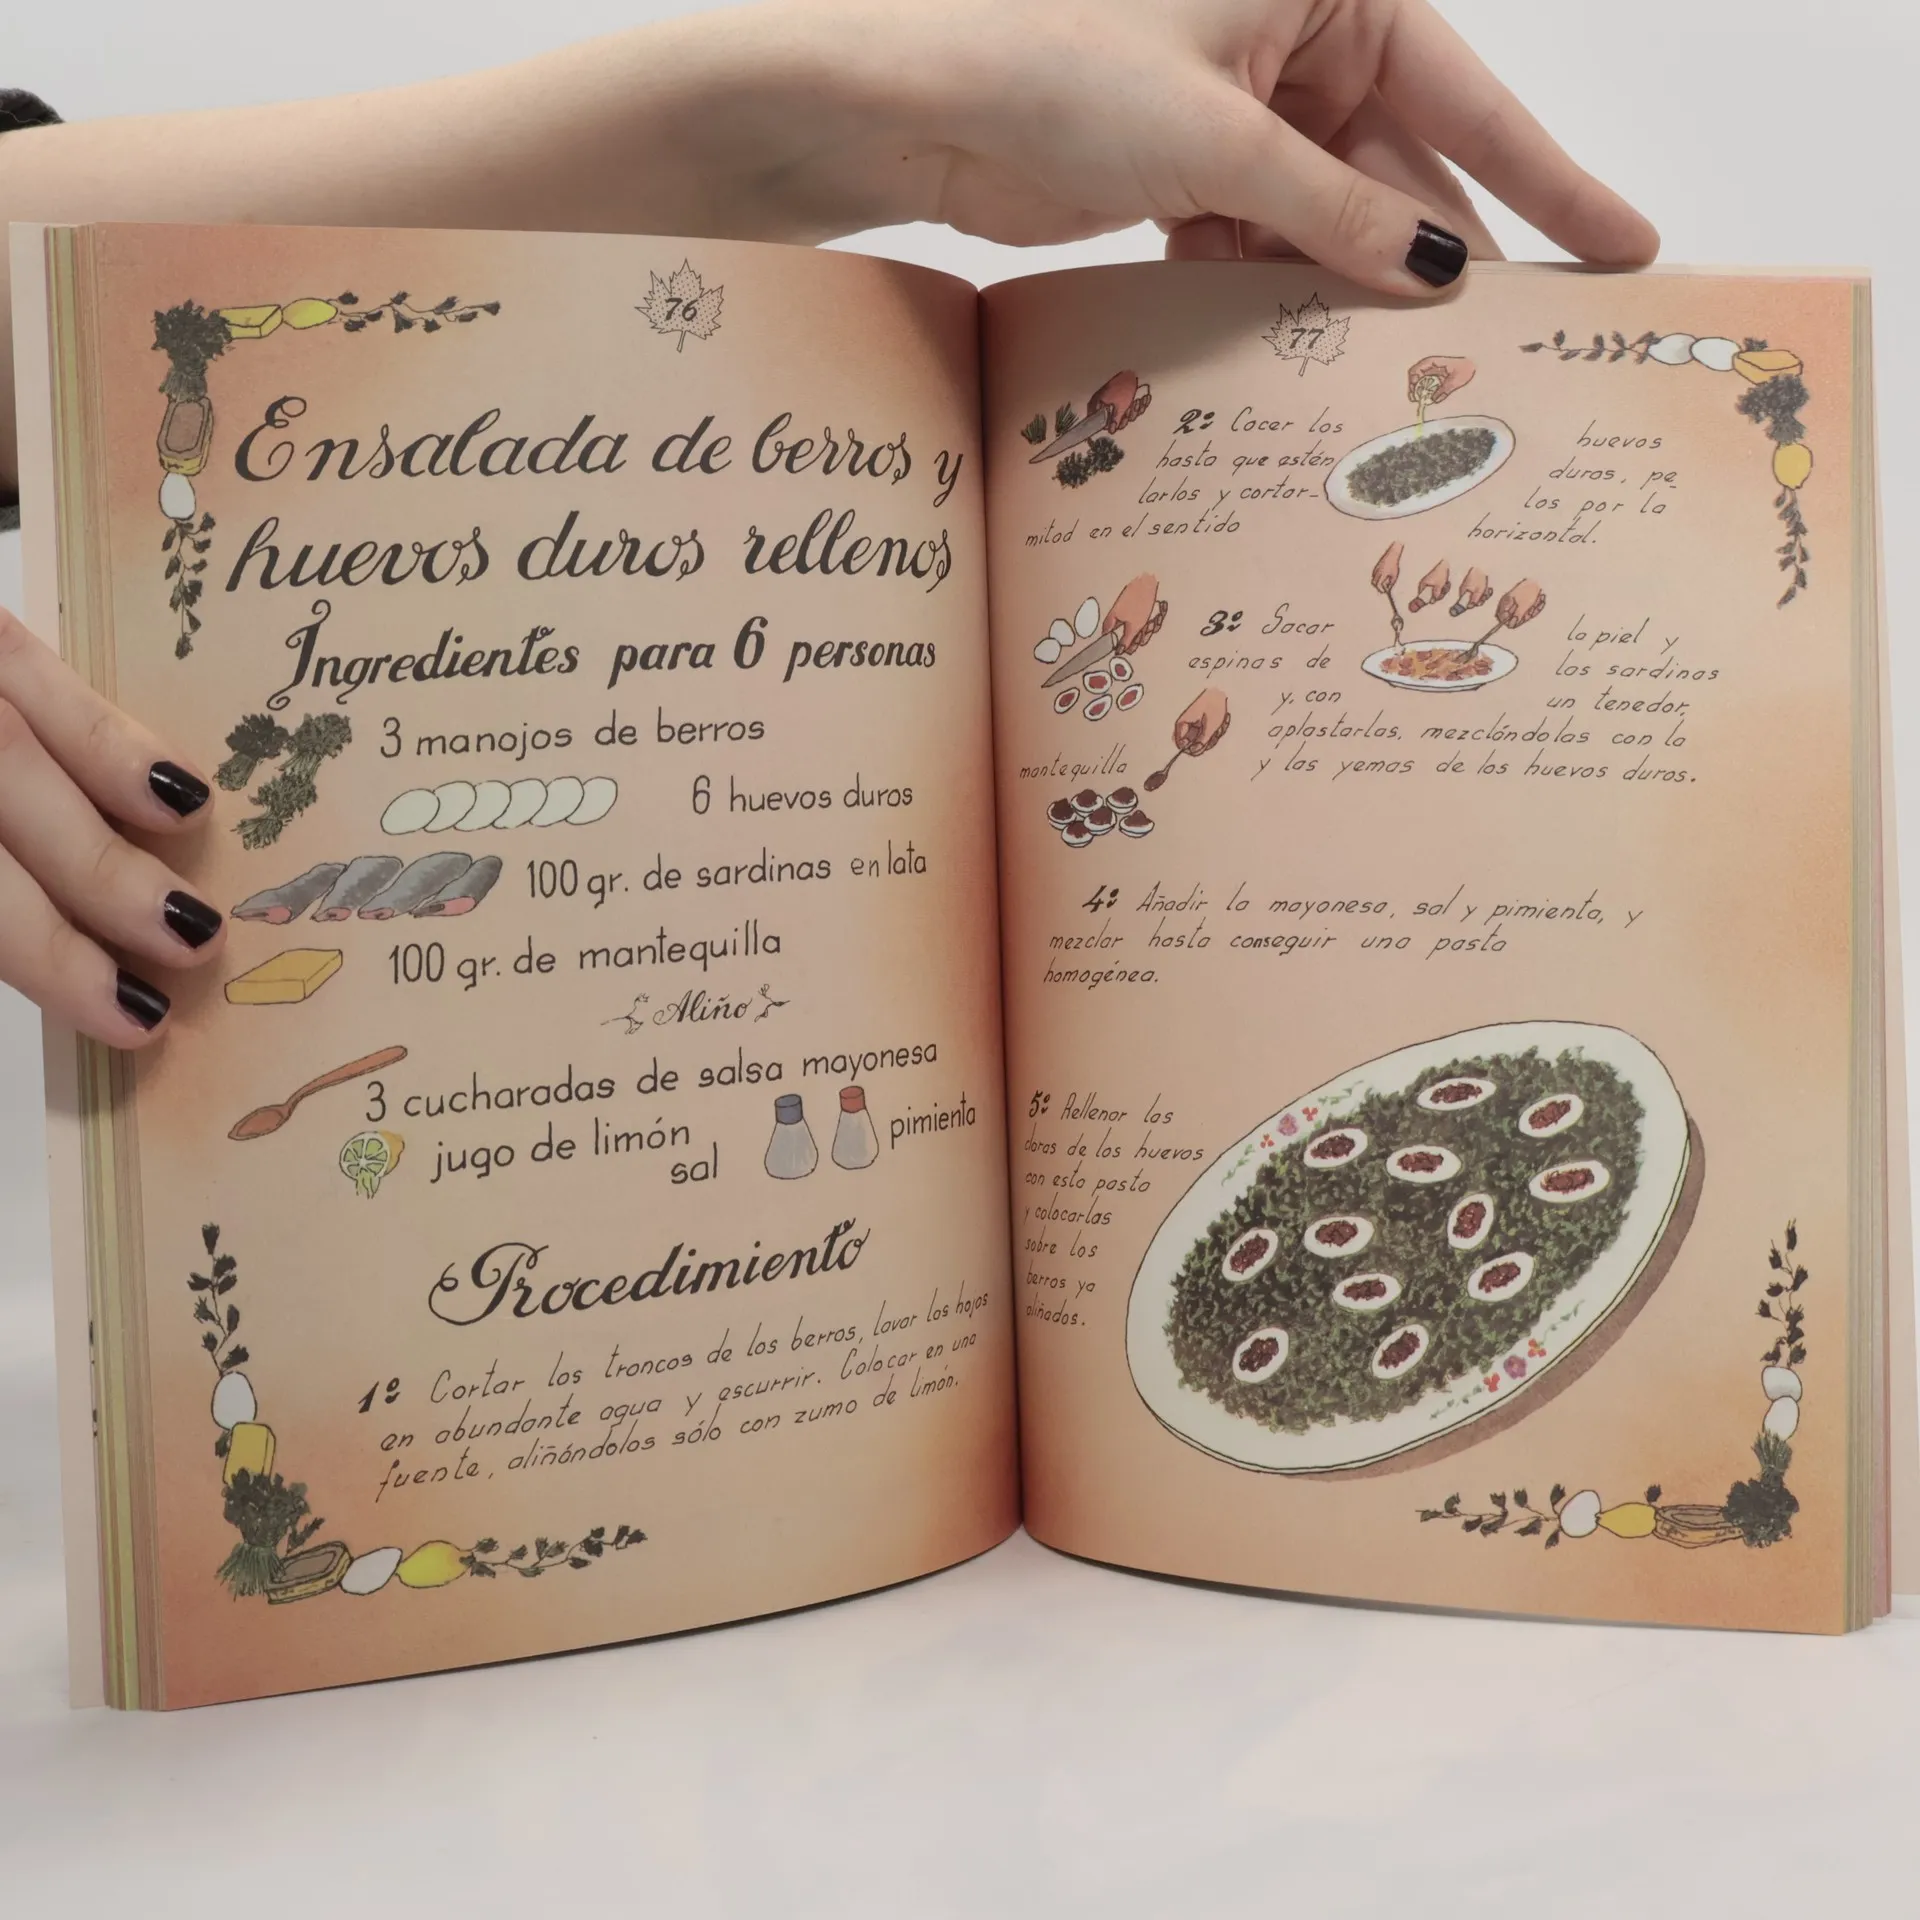 76
Ensalada de berros y
huevos duros rellenos
Ingredientes para 6 personas
3 manojos de berros
6 huevos duros
100 gr. de sardinas en lata
100 gr. de mantequilla
Aliño
3 cucharadas de salsa mayonesa
jugo de limón
sal
pimienta
Procedimiento
1º Cortar los troncos de los berros, lavar las hojas
en abundante agua y escurrir. Colocar en una
fuente, aliñándolos sólo con zumo de limón.
77
2º Cocer los huevos
hasta que estén duros, pe-
larlos y cortar- los por la
mitad en el sentido horizontal.
3º Sacar la piel y
espinas de las sardinas
y, con un tenedor,
aplastarlas, mezclándolas con la
mantequilla y las yemas de los huevos duros.
4º Añadir la mayonesa, sal y pimienta, y
mezclar hasta conseguir una pasta
homogénea.
5º Rellenar las
claras de los huevos
con esta pasta
y colocarlas
sobre los
berros ya
aliñados.